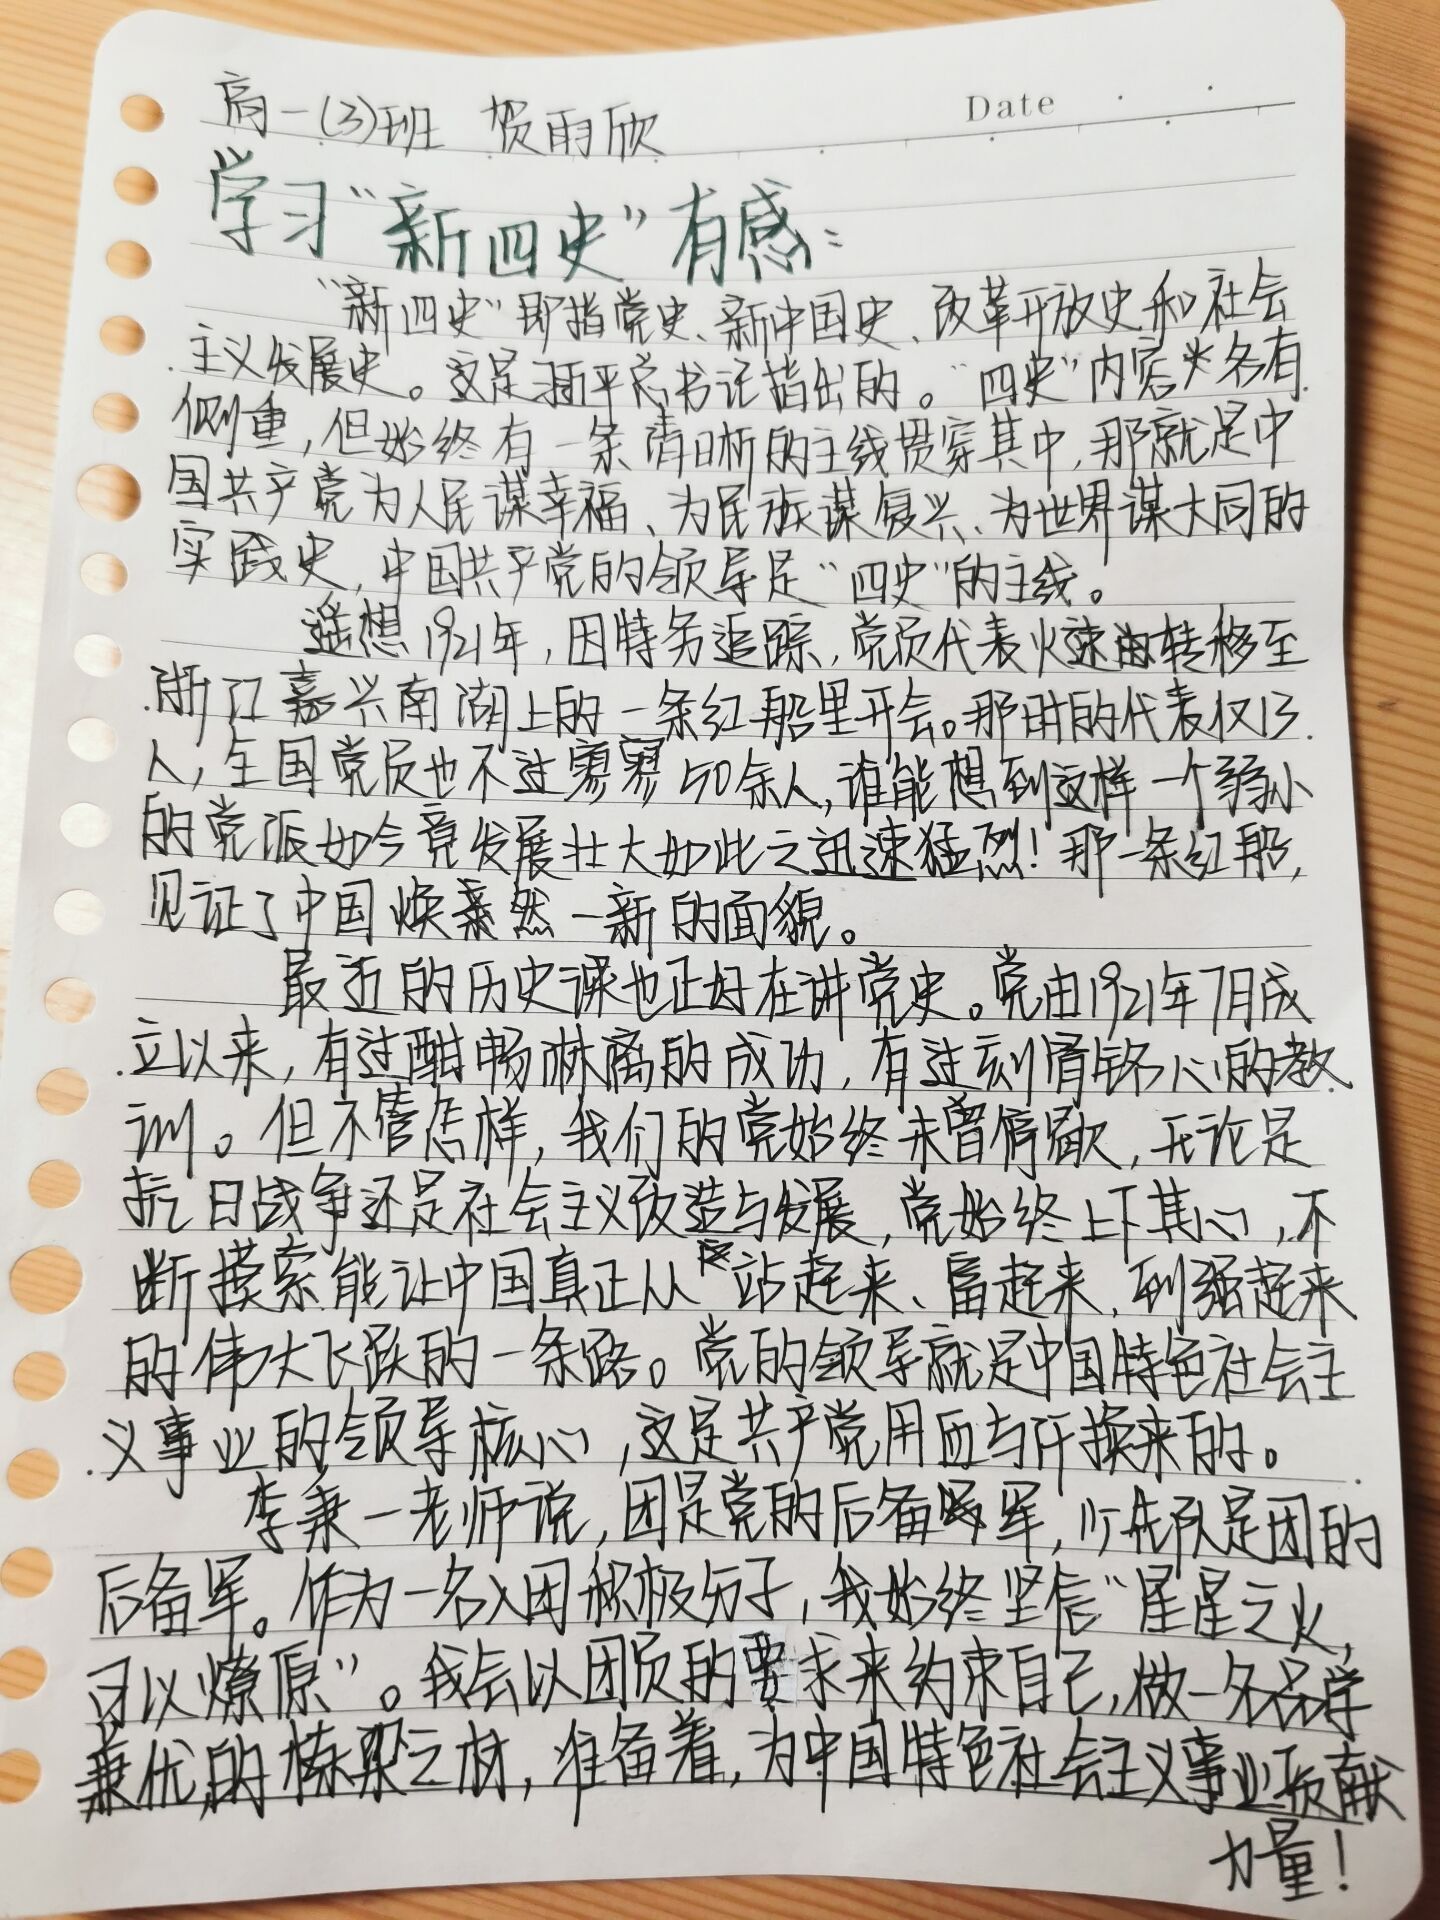 高一(3)班 贺雨欣
Date
学习“新四史”有感：
“新四史”即指党史、新中国史、改革开放史和社会
主义发展史。这是习近平总书记指出的。“四史”内容各有
侧重，但始终有一条清晰的主线贯穿其中，那就是中
国共产党为人民谋幸福、为民族谋复兴、为世界谋大同的
实践史，中国共产党的领导是“四史”的主线。
遥想1921年，因特务追踪，党员代表火速转移至
浙江嘉兴南湖上的一条红船里开会。那时的代表仅13
人，全国党员也不过寥寥50余人，谁能想到这样一个弱小
的党派如今竟发展壮大如此之迅速猛烈！那一条红船，
见证了中国焕然一新的面貌。
最近的历史课也正好在讲党史。党由1921年7月成
立以来，有过酣畅淋漓的成功，有过刻骨铭心的教
训。但不管怎样，我们的党始终未曾停歇，无论是
抗日战争还是社会主义改造与发展，党始终上下其心，不
断摸索能让中国真正从站起来、富起来，到强起来
的伟大飞跃的一条路。党的领导就是中国特色社会主
义事业的领导核心，这是共产党用血与汗换来的。
李秉一老师说，团是党的后备军，少先队是团的
后备军。作为一名入团积极分子，我始终坚信“星星之火，
可以燎原”。我会以团员的要求来约束自己，做一名品学
兼优的栋梁之材，准备着，为中国特色社会主义事业贡献
力量！